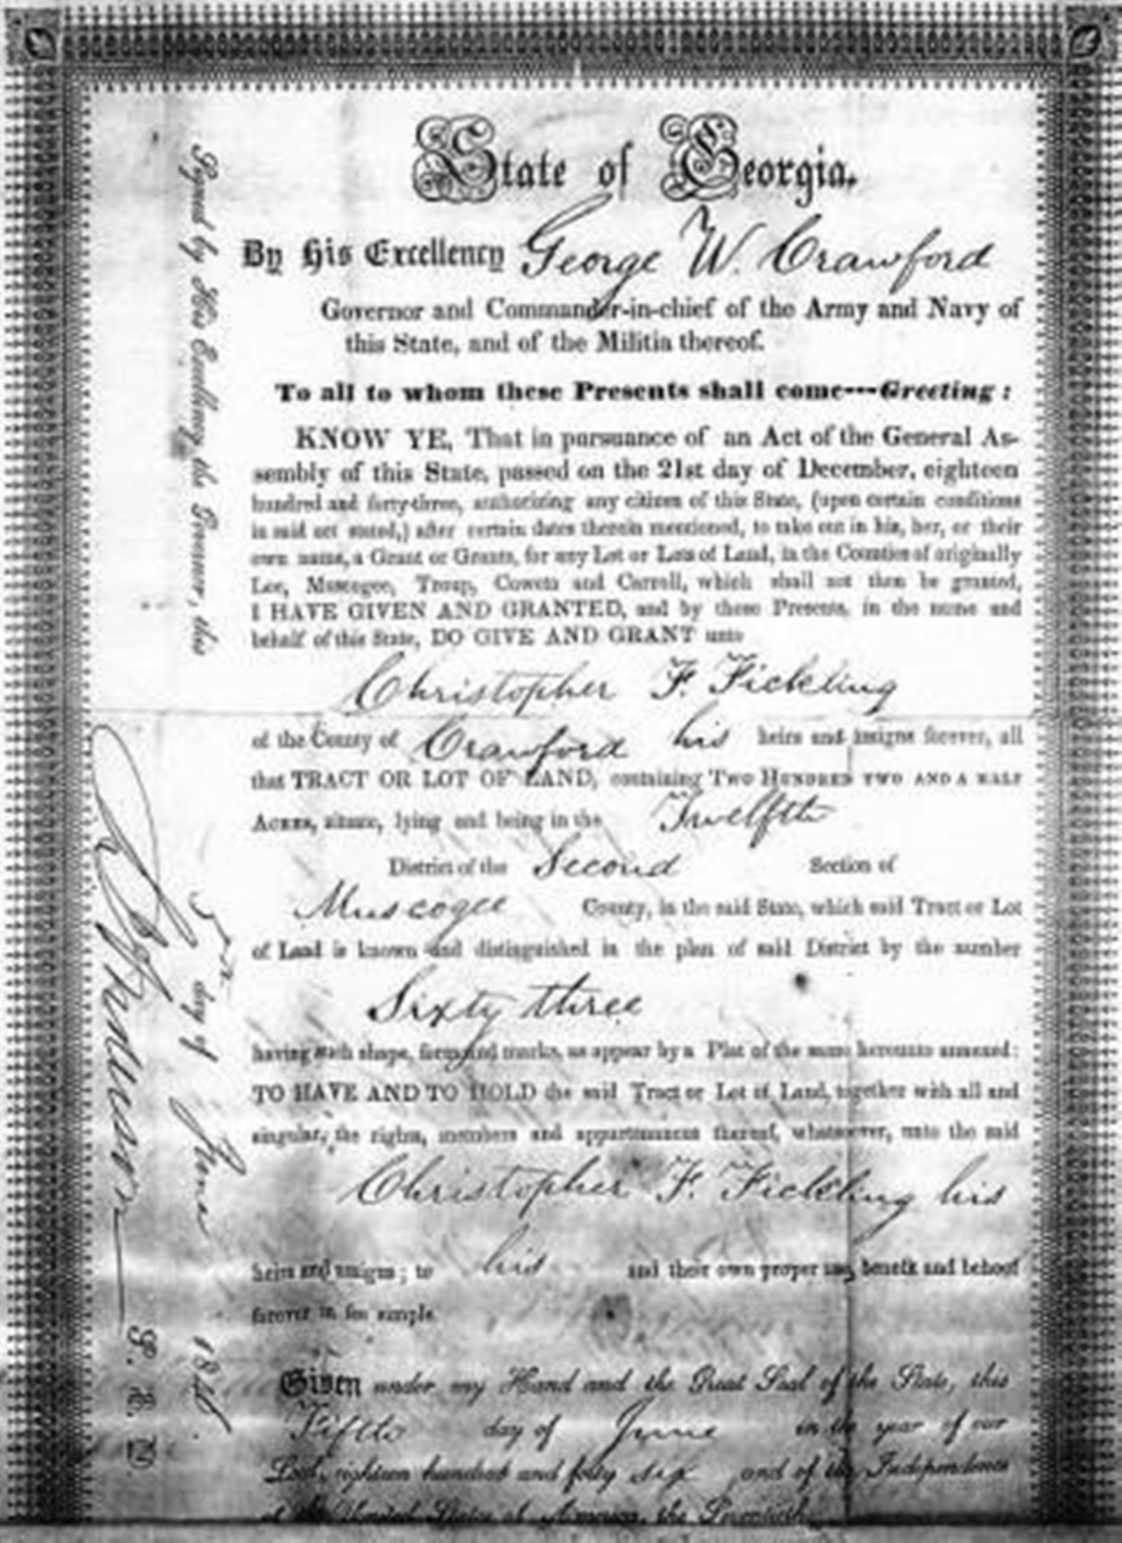 State of Georgia.
By His Excellency George W. Crawford
Governor and Commander-in-chief of the Army and Navy of
this State, and of the Militia thereof.
To all to whom these Presents shall come---Greeting:
KNOW YE, That in pursuance of an Act of the General As-
sembly of this State, passed on the 21st day of December, eighteen
hundred and forty-three, authorizing any citizen of this State, (upon certain conditions
in said act stated,) after certain dates therein mentioned, to take out in his, her, or their
own name, a Grant or Grants, for any Lot or Lots of Land, in the Counties of originally
Lee, Muscogee, Troup, Coweta and Carroll, which shall not then be granted,
I HAVE GIVEN AND GRANTED, and by these Presents, in the name and
behalf of this State, DO GIVE AND GRANT unto
Christopher F. Fickling
of the County of Crawford his heirs and assigns forever, all
that TRACT OR LOT OF LAND, containing TWO HUNDRED TWO AND A HALF
ACRES, situate, lying and being in the Twelfth
District of the Second Section of
Muscogee County, in the said State, which said Tract or Lot
of Land is known and distinguished in the plan of said District by the number
Sixty three
having such shape, form and marks, as appear by a Plat of the same hereunto annexed:
TO HAVE AND TO HOLD the said Tract or Lot of Land, together with all and
singular, the rights, members and appurtenances thereof, whatsoever, unto the said
Christopher F. Fickling his
heirs and assigns; to his and their own proper use, benefit and behoof
forever in fee simple.
Given under my Hand and the Great Seal of the State, this
Fifth day of June in the year of our
Lord, eighteen hundred and forty six and of the Independence
of the United States of America, the Seventieth
Signed by His Excellency the Governor, this
day of June 184